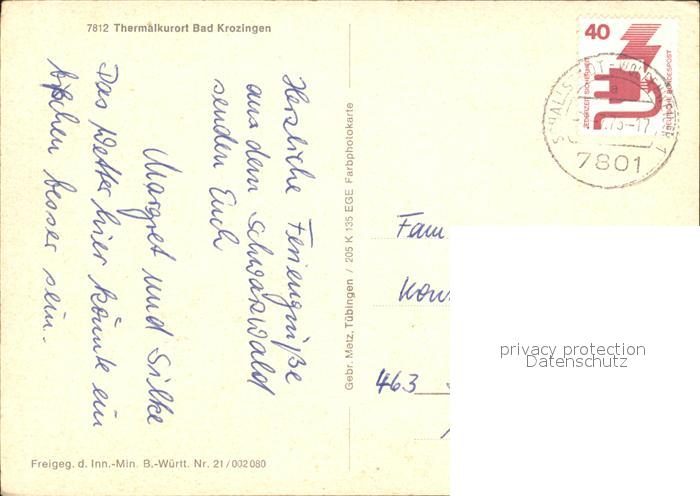 7812 Thermalkurort Bad Krozingen
Herzliche Feriengrüße
aus dem Schwarzwald
senden Euch
Margret und Silke
Das Wetter hier könnte ein
bißchen besser sein.
Freigeg. d. Inn.-Min. B.-Württ. Nr. 21/002080
Gebr. Metz, Tübingen / 205 K 135 EGE Farbphotokarte
40
JEDERZEIT SICHERHEIT
DEUTSCHE BUNDESPOST
7801
Fam
463
privacy protection
Datenschutz